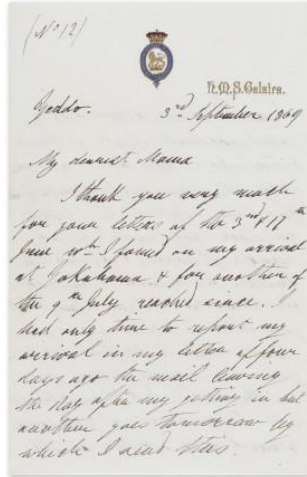 (No 12)
H.M.S. Galatea.
Yeddo.
3rd September 1869
My dearest Mama
I thank you very much
for your letters of the 3rd & 17th
June wh. I found on my arrival
at Yokohama & for another of
the 9th July received since. I
had only time to report my
arrival in my letter of four
days ago the mail leaving
the day after my getting in but
another goes tomorrow by
which I send this.